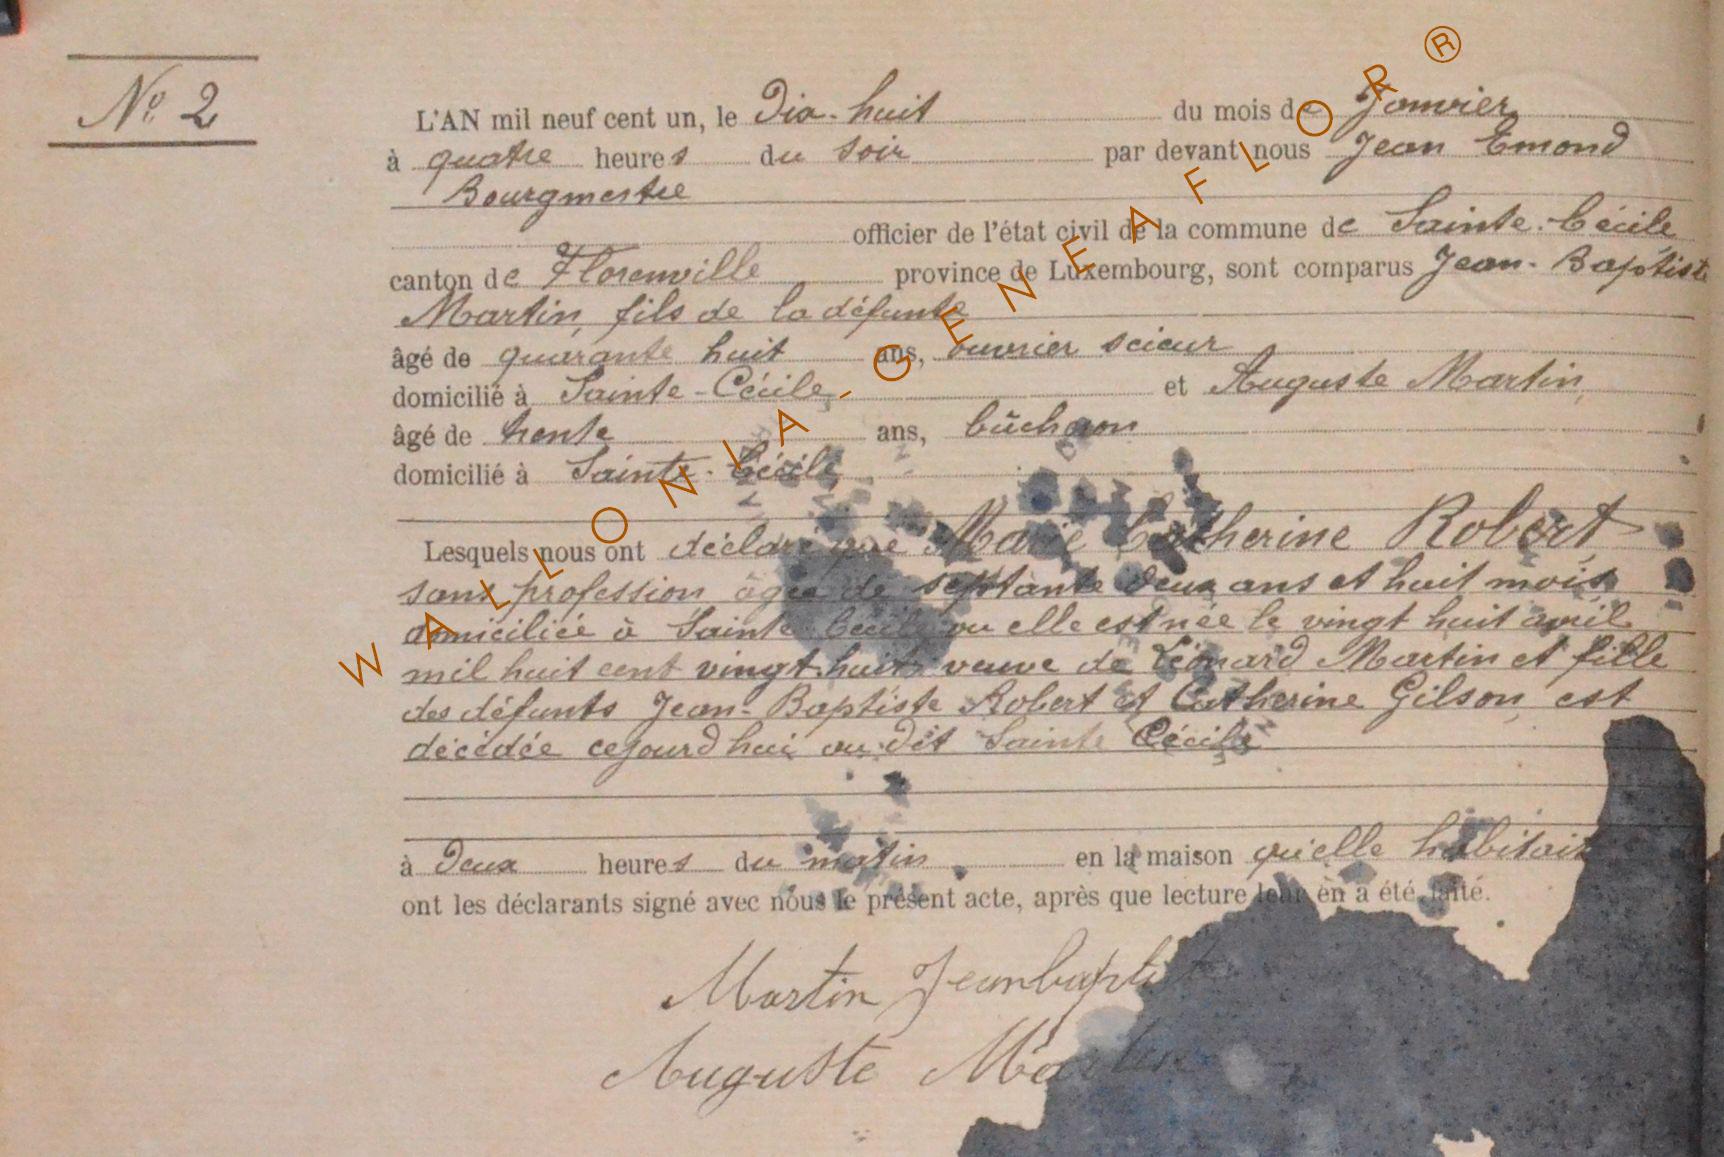 N° 2
L'AN mil neuf cent un, le Dix-huit du mois de Janvier
à quatre heures du soir par devant nous Jean Emond
Bourgmestre
officier de l'état civil de la commune de Sainte-Cécile
canton de Florenville province de Luxembourg, sont comparus Jean-Baptiste
Martin, fils de la défunte
âgé de quarante huit ans, ouvrier scieur
domicilié à Sainte-Cécile, et Auguste Martin,
âgé de trente ans, bûcheron
domicilié à Sainte-Cécile,
Lesquels nous ont déclaré que Marie Catherine Robert
sans profession âgée de septante deux ans et huit mois
domiciliée à Sainte Cécile ou elle est née le vingt huit avril
mil huit cent vingt huit veuve de Léonard Martin et fille
des défunts Jean-Baptiste Robert et Catherine Gilson, est
décédée cejourd'hui au dit Sainte Cécile
à Deux heures du matin en la maison qu'elle habitait
ont les déclarants signé avec nous le présent acte, après que lecture leur en a été faite.
Martin Jeanbaptist
Auguste Martin
WALLONIA-GENEAFLOR ®